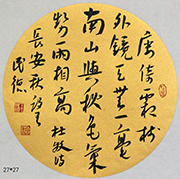 樓倚霜樹
外鏡天無一毫
南山與秋色氣
勢兩相高 杜牧詩
長安秋望
27*27